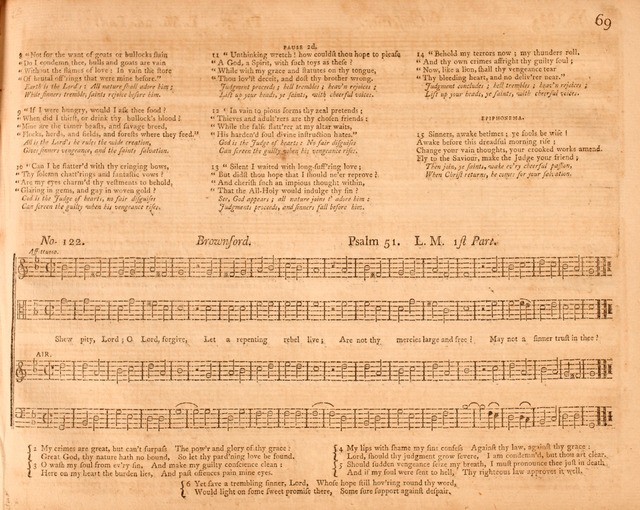 69
PAUSE 2d.
9 "Not for the want of goats or bullocks slain
"Do I condemn thee, bulls and goats are vain
"Without the flames of love: In vain the store
"Of brutal off'rings that were mine before."
Earth is the Lord's: All nature shall adore him;
While sinners tremble, saints rejoice before him.
"If I were hungry, would I ask thee food?
"When did I thirst, or drink thy bullock's blood?
"Mine are the tamer beasts, and savage breed,
"Flocks, herds, and fields, and forests where they feed."
All is the Lord's he rules the wide creation,
Gives sinners vengeance, and the saints salvation.
10 "Can I be flatter'd with thy cringing bows,
"Thy solemn chatt'rings and fantastic vows?
"Are my eyes charm'd thy vestments to behold,
"Glaring in gems, and gay in woven gold?
God is the Judge of hearts, no fair disguises
Can screen the guilty when his vengeance rises.
11 "Unthinking wretch! how couldst thou hope to please
"A God, a Spirit, with such toys as these?
"While with my grace and statutes on thy tongue,
"Thou lov'st deceit, and dost thy brother wrong.
Judgment proceeds; hell trembles; heav'n rejoices;
Lift up your heads, ye saints, with cheerful voices.
12 "In vain to pious forms thy zeal pretends;
"Thieves and adult'rers are thy chosen friends;
"While the false flatt'rer at my altar waits,
"His harden'd soul divine instruction hates."
God is the Judge of hearts: No fair disguises
Can screen the guilty when his vengeance rises.
13 "Silent I waited with long-suff'ring love;
"But didst thou hope that I should ne'er reprove?
"And cherish such an impious thought within,
"That the All-Holy would indulge thy sin?
See, God appears; all nature joins t' adore him:
Judgments proceeds, and sinners fall before him.
14 "Behold my terrors now; my thunders roll,
"And thy own crimes affright thy guilty soul;
"Now, like a lion, shall thy vengeance tear
"Thy bleeding heart, and no deliv'rer near."
Judgment concludes; hell trembles; heav'n rejoices;
Lift up your heads, ye saints, with cheerful voices.
EPIPHONEMA.
15 Sinners, awake betimes; ye fools be wise!
Awake before this dreadful morning rise;
Change your vain thoughts, your crooked works amend.
Fly to the Saviour, make the Judge your friend;
Then join, ye saints, wake ev'ry cheerful passion,
When Christ returns, he comes for your salvation.
No. 122. Brownsord. Psalm 51. L. M. 1st Part.
Affettuoso.
Shew pity, Lord; O Lord, forgive, Let a repenting rebel live; Are not thy mercies large and free? May not a sinner trust in thee?
AIR.
2 My crimes are great, but can't surpass The pow'r and glory of thy grace?
Great God, thy nature hath no bound, So let thy pard'ning love be found,
3 O wash my soul from ev'ry sin, And make my guilty conscience clean:
Here on my heart the burden lies, And past offences pain mine eyes.
4 My lips with shame my sins confess Against thy law, against thy grace:
Lord, should thy judgment grow severe, I am condemn'd, but thou art clear.
5 Should sudden vengeance seize my breath, I must pronounce thee just in death,
And if my soul were sent to hell, Thy righteous law approves it well.
6 Yet save a trembling sinner, Lord, Whose hope still hov'ring round thy word,
Would light on some sweet promise there, Some sure support against despair.